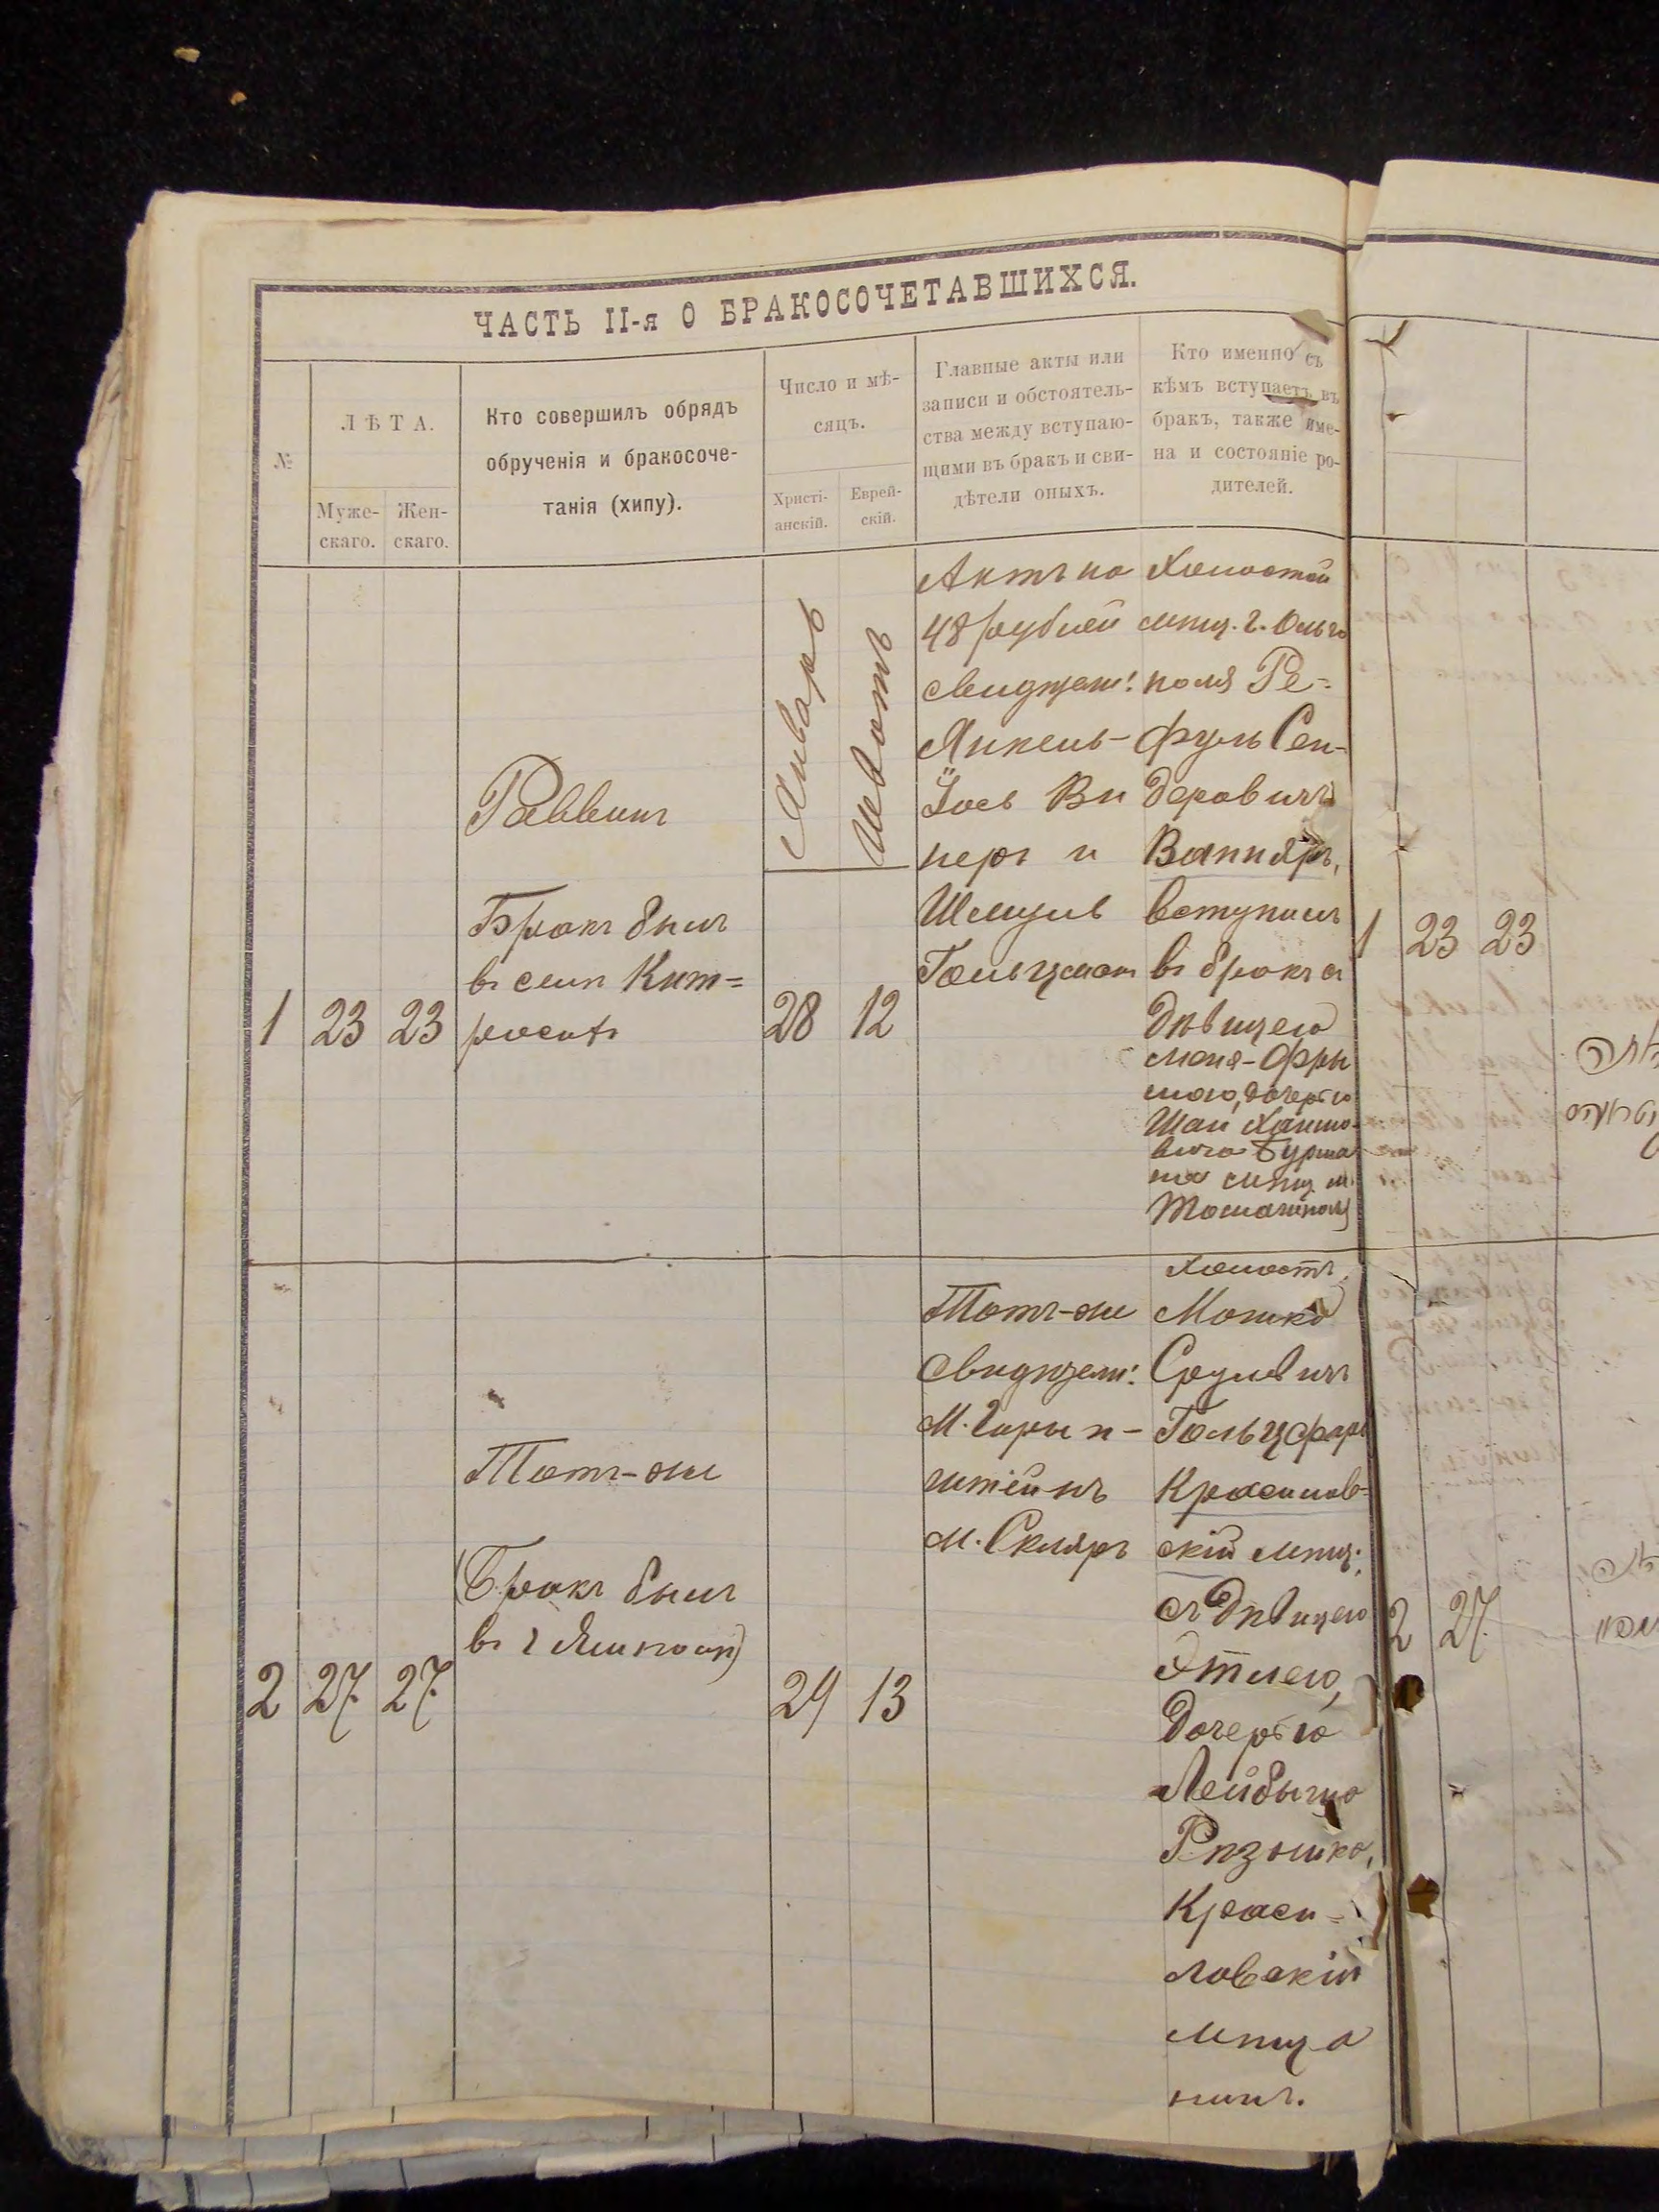 ЧАСТЬ II-я О БРАКОСОЧЕТАВШИХСЯ.
№
ЛѢТА.
Муже-
скаго.
Жен-
скаго.
Кто совершилъ обрядъ
обрученія и бракосоче-
танія (хипу).
Число и мѣ-
сяцъ.
Христі-
анскій.
Еврей-
скій.
Главные акты или
записи и обстоятель-
ства между вступаю-
щими въ бракъ и сви-
дѣтели оныхъ.
Кто именно съ
кѣмъ вступаетъ въ
бракъ, также име-
на и состояніе ро-
дителей.
1
23
23
Раввинъ
Бракъ былъ
въ
Январь
28
Шеватъ
12
Актъ на
48 рублей
свидѣтел:
Янкель-
Іось Ви
неръ и
Шмуль
Гольцман
Холостой
мѣщ. г. Ольго
поля Ре-
фуль Сен-
деровичъ
Вапняръ,
вступилъ
въ бракъ съ
Дѣвицею
дочерью
Шаи Хаимо-
вича Бурма
на мѣщ м.
Томашполя
2
27
27
Тотъ-же
(Бракъ былъ
29
13
Тотъ-же
Свидѣтел:
штейнъ
М. Скляръ
Холостъ
Мошко
Срулевич
Гольцфарб
Красилов-
скій мѣщ.
съ Дѣвицею
Этлею,
Дочерью
Лейбыша
Рѣзника,
Краси-
ловскій
мѣща
нинъ.
1
23
23
2
27